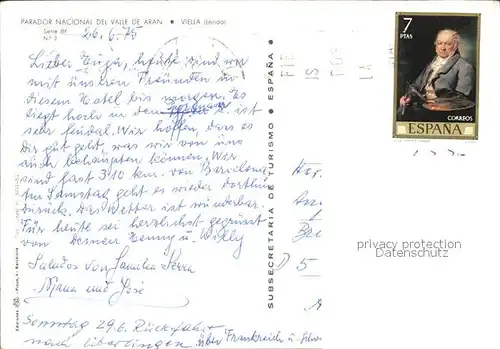 PARADOR NACIONAL DEL VALLE DE ARAN • VIELLA (Lérida)
Serie BF
Nº 2
26.6.75
Lieber Hugo, heute sind wir
mit unseren Freunden in
diesem Hotel bis morgen. Es
liegt hoch in den u. ist
sehr feudal. Wir hoffen, dass es
Dir gut geht, was wir von uns
auch behaupten können. Wir
sind fast 310 km. von Barcelona
Am Samstag geht es wieder dorthin
zurück. Das Wetter ist wunderbar.
Für heute sei herzlichst gegrüsst
von Deinen Henny u. Willy
Saludos von Familia Serra
Maria und José
Sonntag 29.6. Rückfahrt
nach Überlingen über Frankreich u.
SUBSECRETARIA DE TURISMO • ESPAÑA •
7
PTAS
CORREOS
ESPAÑA
D 5
privacy protection
Datenschutz